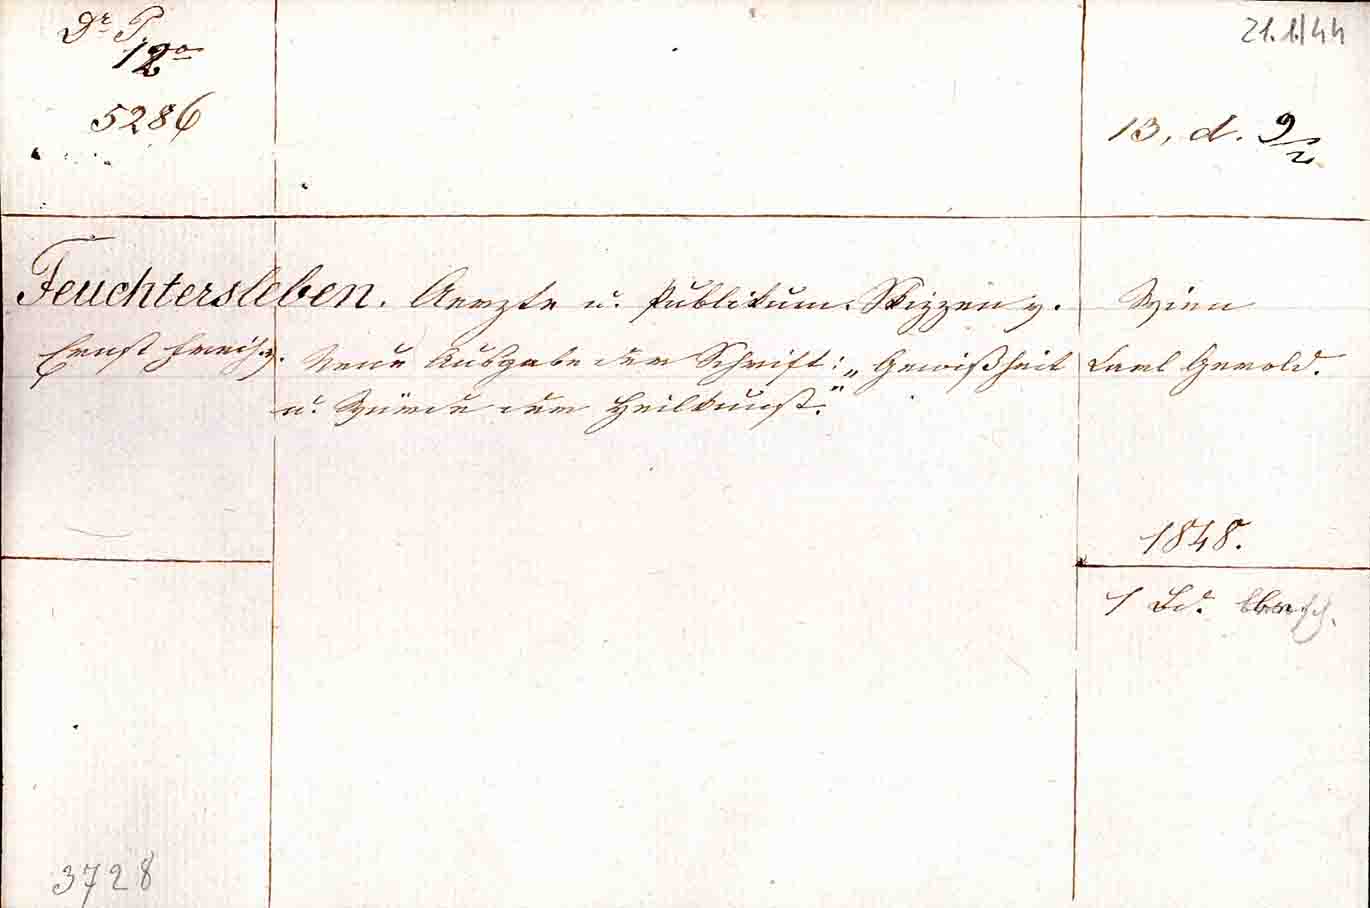 Dr. P.
12o
5286
21.1/44
13, d. 9/2
Feuchtersleben. Aerzte u. Publikum. Skizzen v. Wien
Ernst Freih. v. Neue Ausgabe der Schrift: „Gewißheit Carl Gerold.
u. Würde der Heilkunst."
1848.
1 Bd.
3728